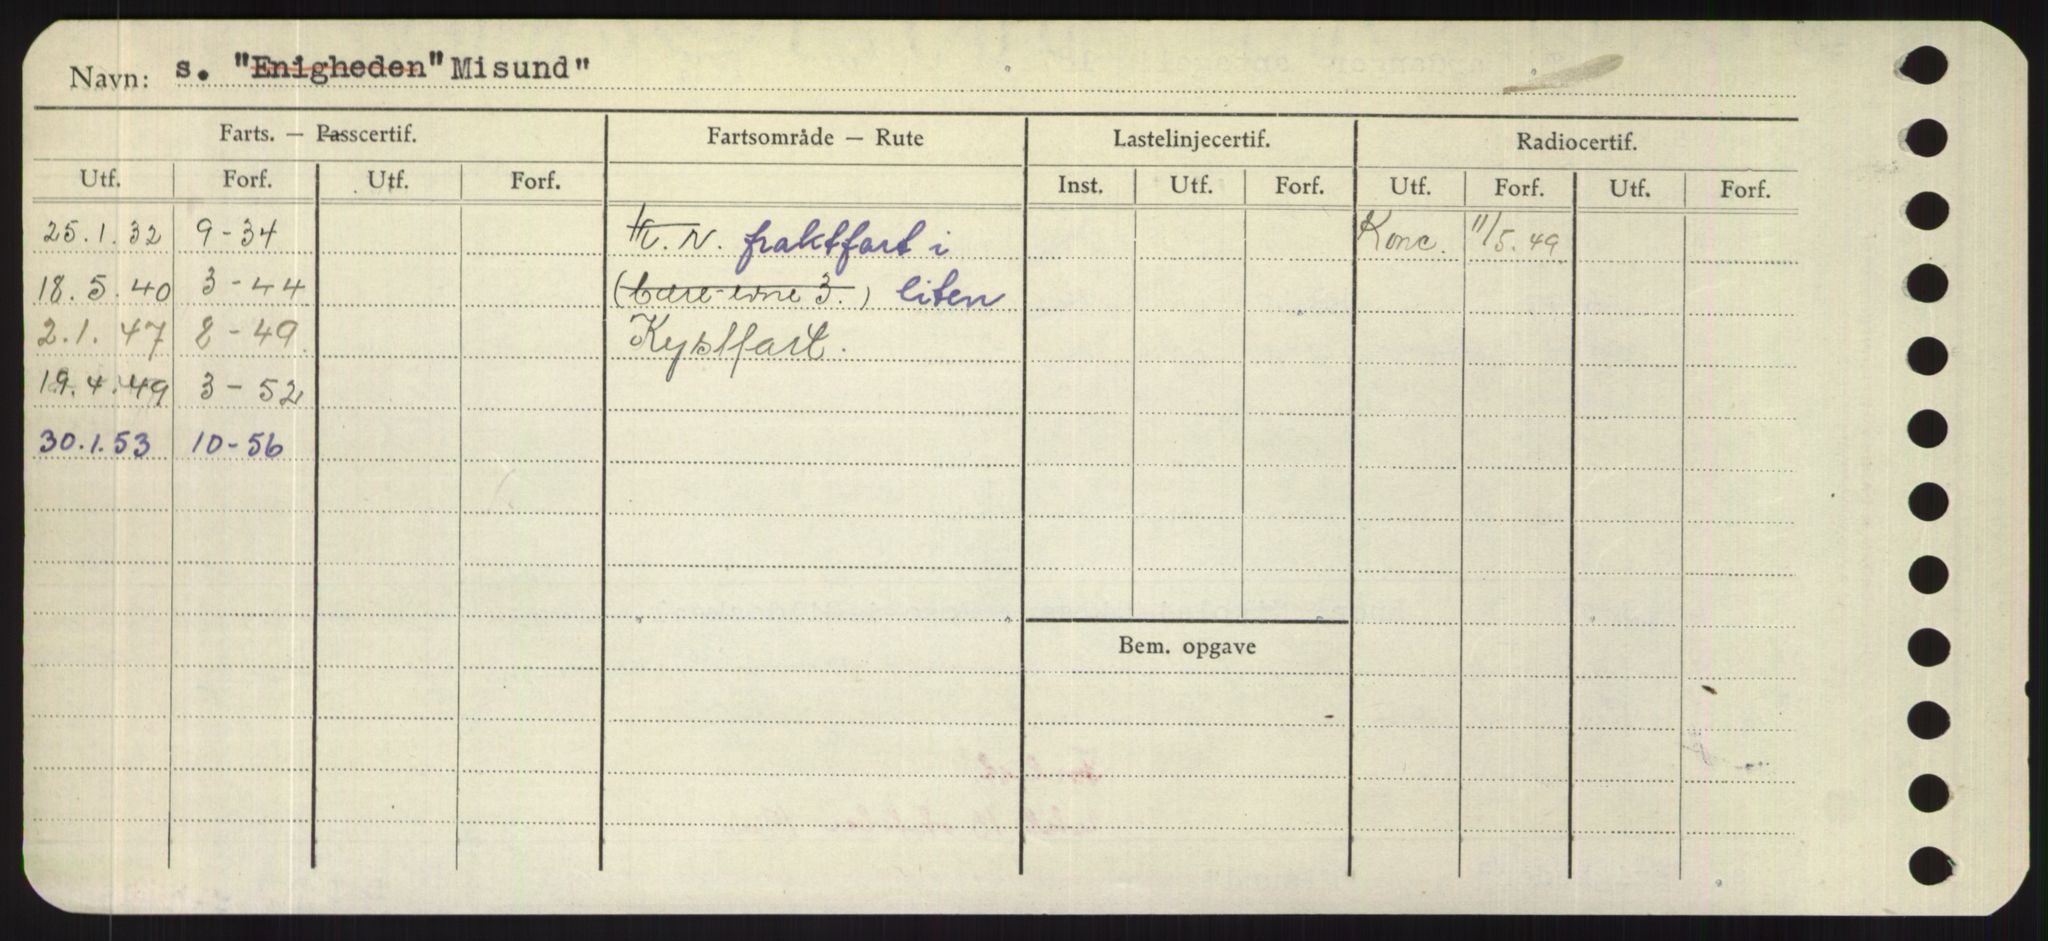 Navn: s. "Enigheden" Misund"
Farts. — Passcertif. Fartsområde — Rute Lastelinjecertif. Radiocertif.
Utf. Forf. Utf. Forf. Inst. Utf. Forf. Utf. Forf. Utf. Forf.
25.1.32 9-34 fraktfart i Konc. 11/5.49
18.5.40 3-44 (bære-evne 3.) liten
2.1.47 8-49 Kystfart.
19.4.49 3-52
30.1.53 10-56
Bem. opgave